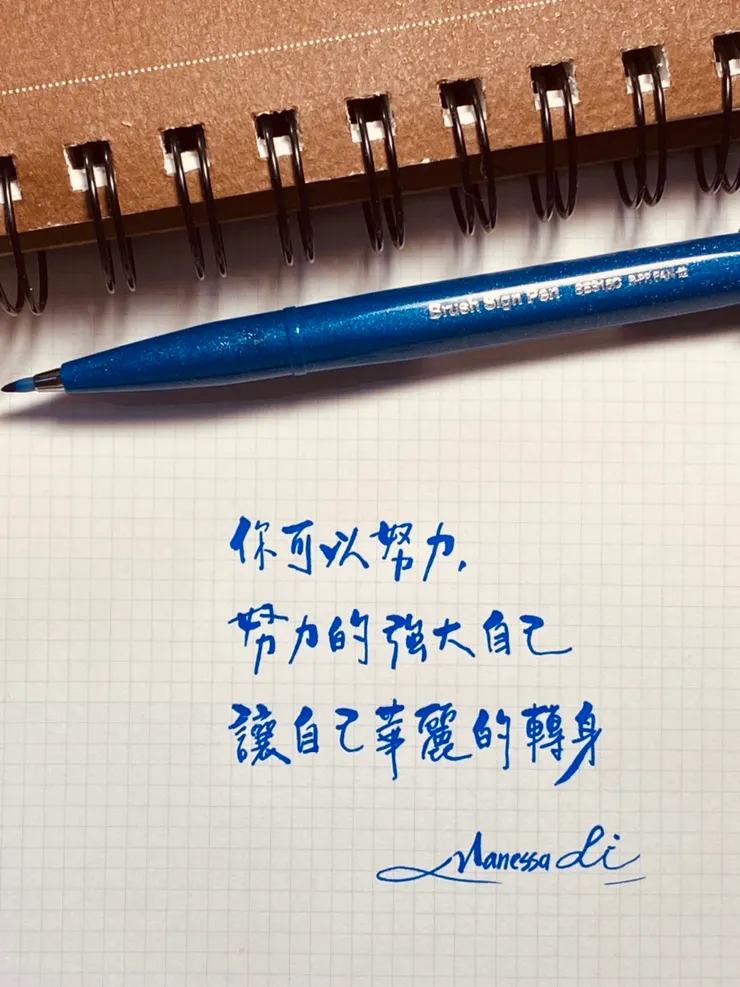 Brush Sign Pen SES15C P.PP.PAN-12
你可以努力,
努力的強大自己
讓自己華麗的轉身
Vanessa Li